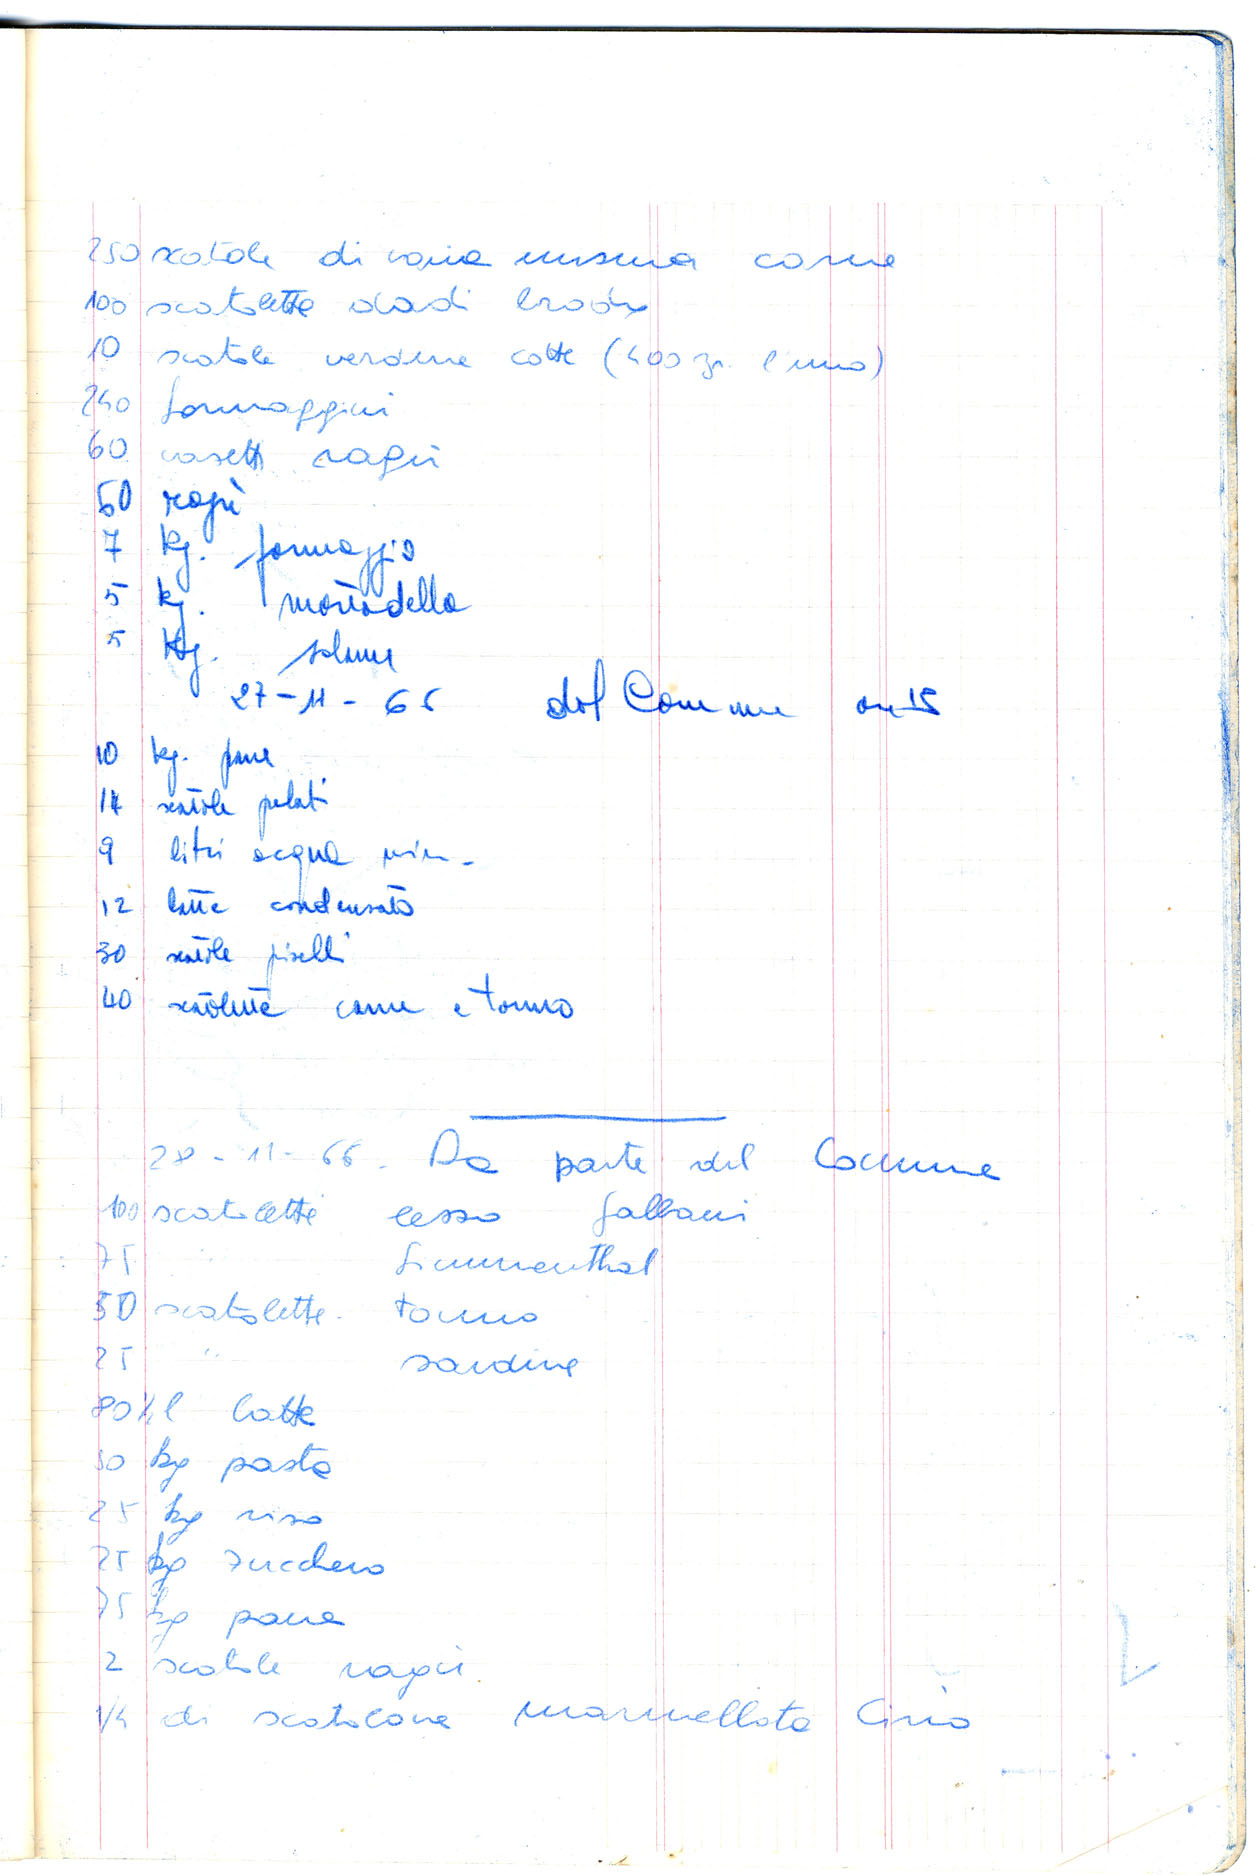 250 scatole di varia misura carne
100 scatolette dadi brodo
10 scatole verdure cotte (400 gr. l'una)
240 formaggini
60 vasetti ragù
50 ragù
7 kg. formaggio
5 kg. mortadella
5 Kg. salame
27-11-66 dal Comune ore 15
10 kg. pane
14 scatole pelati
9 litri acqua min.
12 latte condensato
30 scatole piselli
40 scatolette carne e tonno
28-11-66. Da parte del Comune
100 scatolette lesso Galbani
75 " Simmenthal
50 scatolette tonno
25 " sardine
80 ½ l latte
50 kg pasta
25 kg riso
25 kg zucchero
75 kg pane
2 scatole ragù
1/4 di scatolone marmellata Cirio